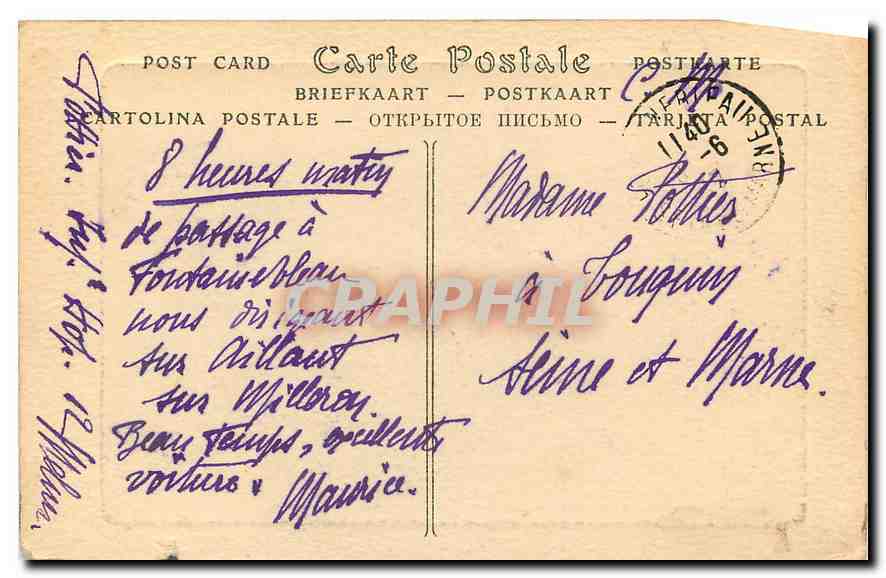 POST CARD Carte Postale POSTKARTE
BRIEFKAART — POSTKAART
CARTOLINA POSTALE — ОТКРЫТОЕ ПИСЬМО — TARJETA POSTAL
C. M.
1140
-6
8 heures matin
de passage à
Fontainebleau
nous dirigeant
sur Aillant
sur Milleron.
Beau temps, excellente
voiture.
Maurice.
Madame Pottier
à Touquin
Seine et Marne.
Pottier. Hop. 12 Melun.
CRAPHIL